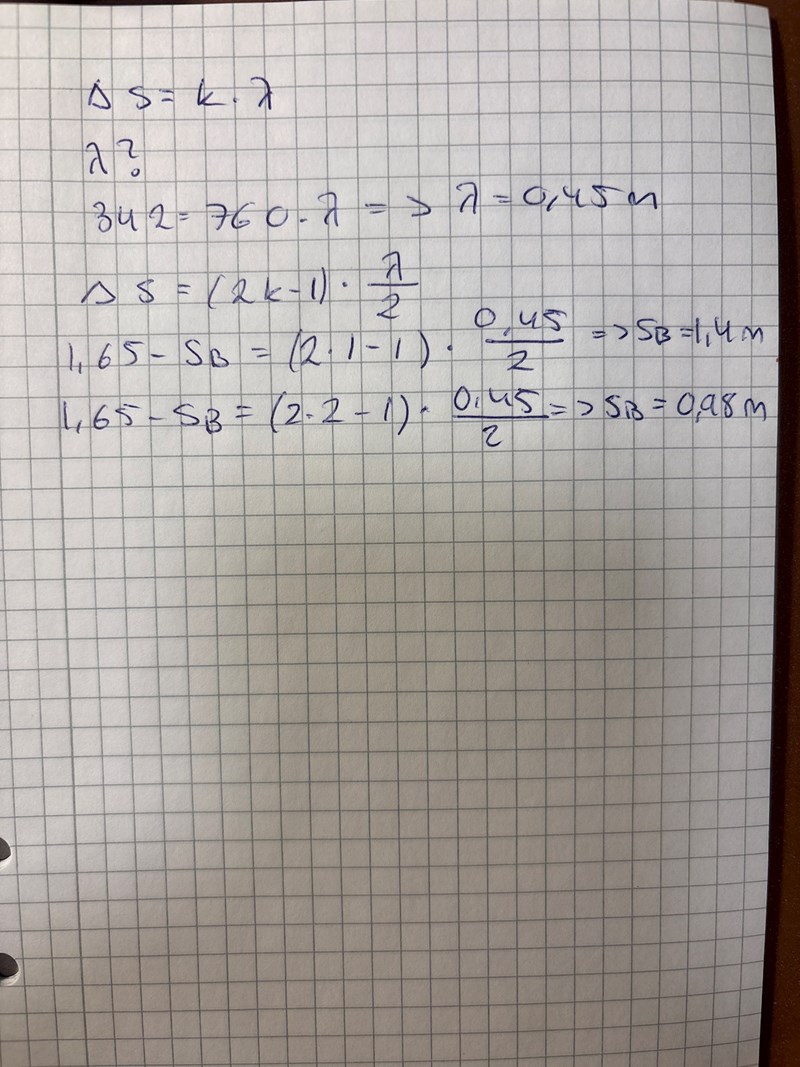 Δ S = k · λ
λ?
342 = 760 · λ => λ = 0,45 m
Δ S = (2k-1) · λ/2
1,65 - SB = (2·1-1) · 0,45/2 => SB = 1,4 m
1,65 - SB = (2·2-1) · 0,45/2 => SB = 0,98 m